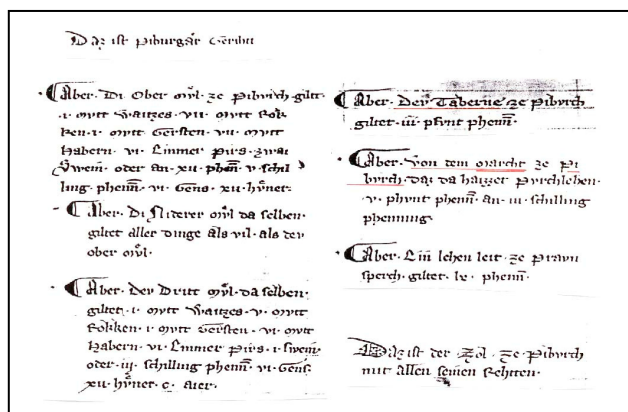 Daz ist Piburgär Gericht
Aber. Di Ober mv̊l ze Pibvrch giltt
.i. mvtt Waitzes. vii. mvtt Rok
ken. i. mvtt Gersten. vii. mvtt
Habern. vi. Emmer Pirs. zwai
Swein. oder an. xii. phen̄. v. schil
ling phenn̄. vi. Gens. xii. hv̊ner.
Aber. Di Niderer mv̊l da selben.
giltet aller dinge als vil. als der
ober mv̊l.
Aber. Der Dritt mv̊l. da selben.
giltet. i. mvtt Waitzes. v. mvtt
Rokken. i. mvtt Gersten. vi. mvtt
Habern. vi. Emmer Pirs. i. swein.
oder. iii. schilling phenn̄. vi. Gens.
xii. hv̊ner. c. aier.
Aber. Dev Taberne ze Pibvrch
giltet. iii. phvnt phenn̄.
Aber. Von dem Marcht ze Pi
bvrch. daz da haizzet Pvrchlehen.
v. phvnt phenn̄. an. iii. schilling
phenning.
Aber. Ein lehen leit. ze Pravn
sperch. giltet. lx. phenn̄.
Daz ist der Zol. ze Pibvrch
mit allen seinen Rehten.